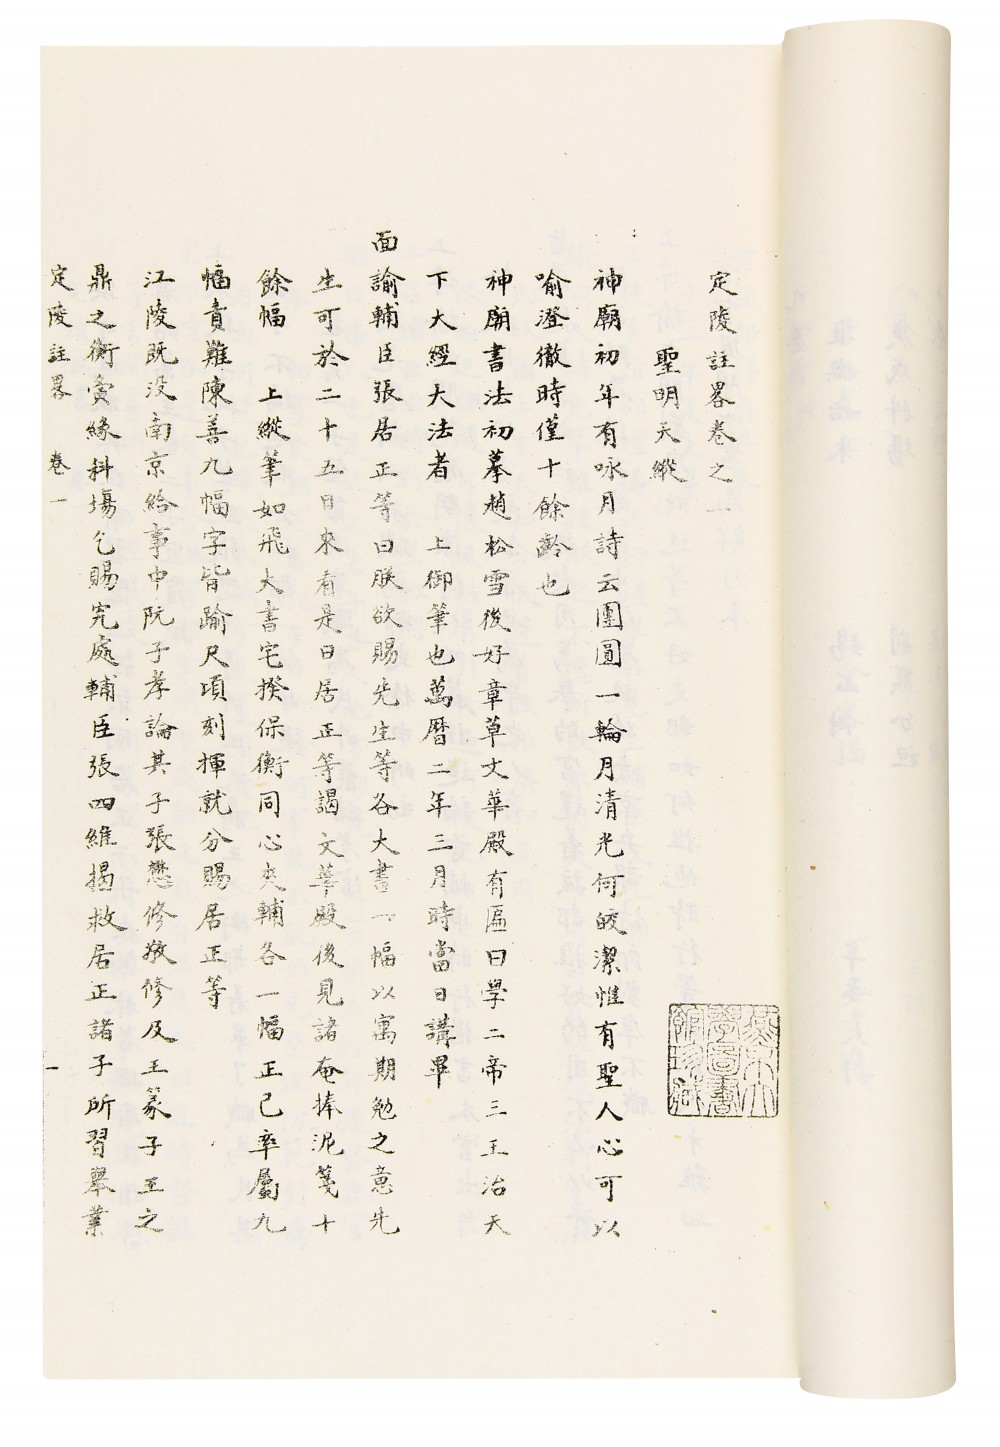 定陵註畧卷之一
聖明天縱
神廟初年有咏月詩云團圓一輪月清光何皎潔惟有聖人心可以
喻澄徹時僅十餘齡也
神廟書法初摹趙松雪後好章草文華殿有匾曰學二帝三王治天
下大經大法者　上御筆也萬曆二年三月時當日講畢
面諭輔臣張居正等曰朕欲賜先生等各大書一幅以寓期勉之意先
生可於二十五日來看是日居正等謁文華殿後見諸奄捧泥箋十
餘幅　上縱筆如飛大書宅揆保衡同心夾輔各一幅正己率屬九
幅責難陳善九幅字皆踰尺頃刻揮就分賜居正等
江陵既没南京給事中阮子孝論其子張懋修敬修及王篆子王之
鼎之衡夤緣科塲乞賜究處輔臣張四維揭救居正諸子所習舉業
定陵註畧　卷一　一
燕京大學圖書館珍藏